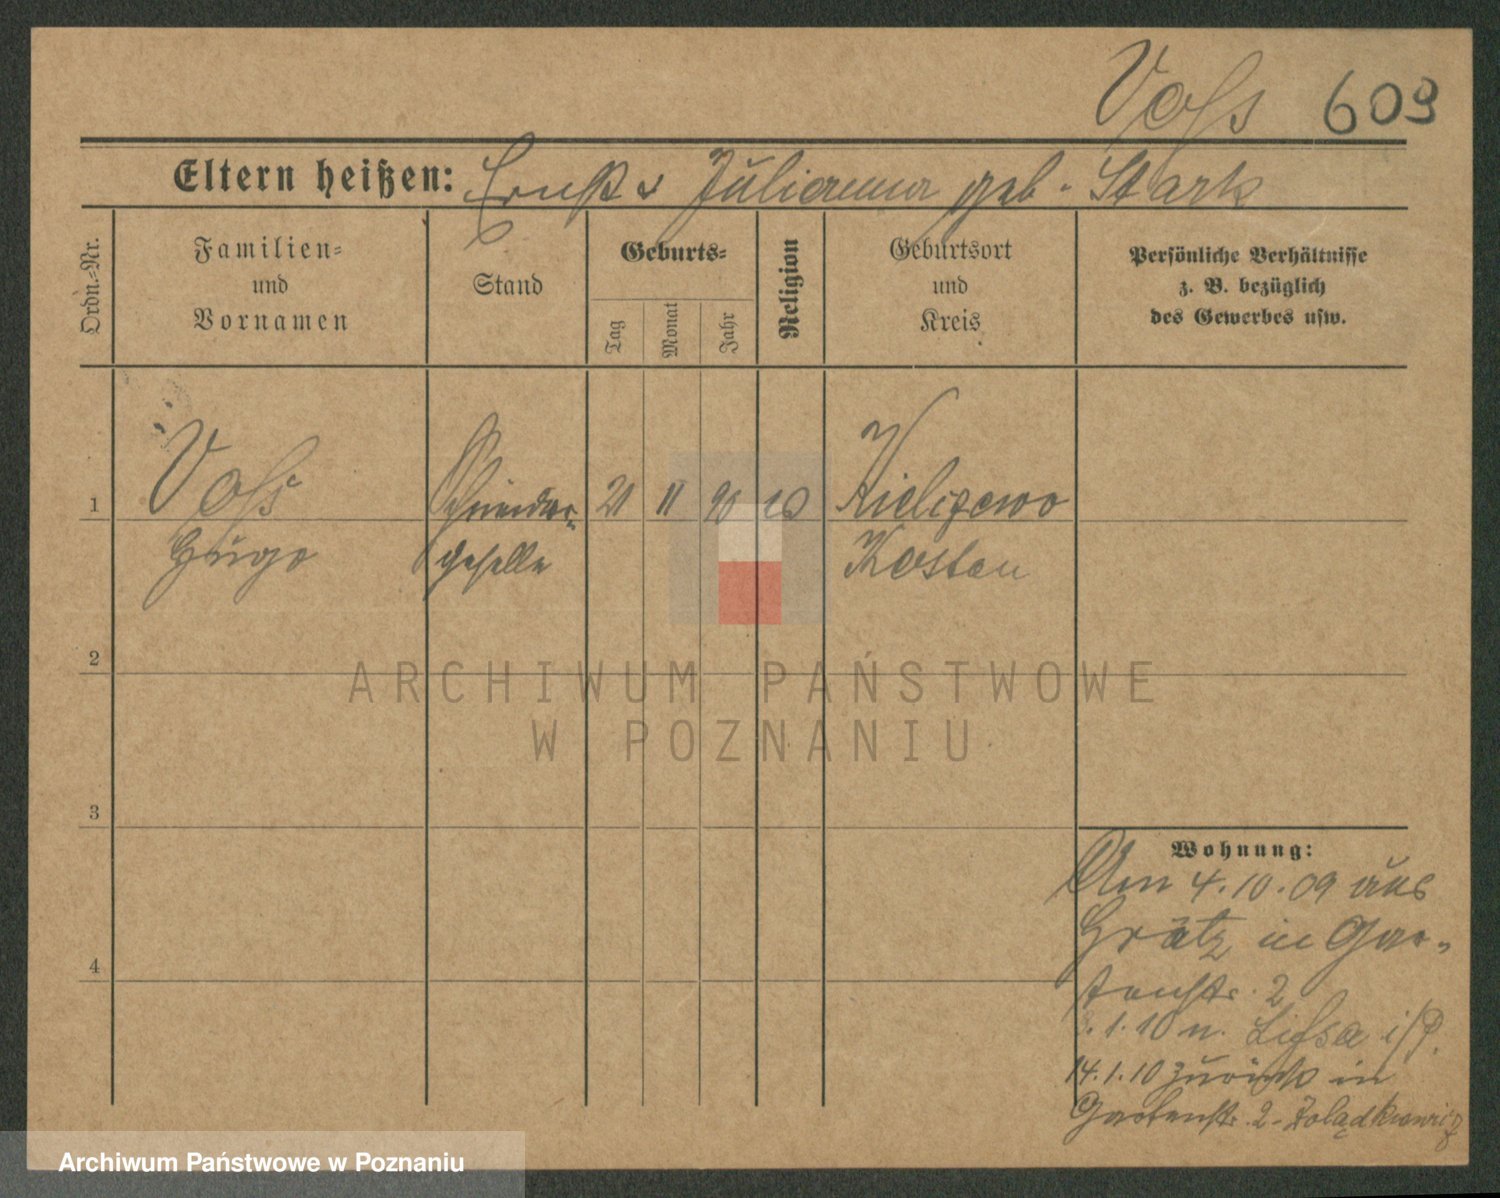 Voß 609
Eltern heißen: Ernst u Julianna geb. Stark
Ordn.-Nr.
Familien-
und
Vornamen
Stand
Geburts-
Tag
Monat
Jahr
Religion
Geburtsort
und
Kreis
Persönliche Verhältnisse
z. B. bezüglich
des Gewerbes usw.
1
Voß
Hugo
geselle
21 11 90
Kielczewo
Kosten
2
3
4
Wohnung:
Am 4.10.09 aus
Grätz in Gar-
tenstr. 2
1.10 n. Lissa i/P.
14.1.10 zurück in
Gartenstr. 2 - Żołądkiewicz
ARCHIWUM PAŃSTWOWE
W POZNANIU
Archiwum Państwowe w Poznaniu